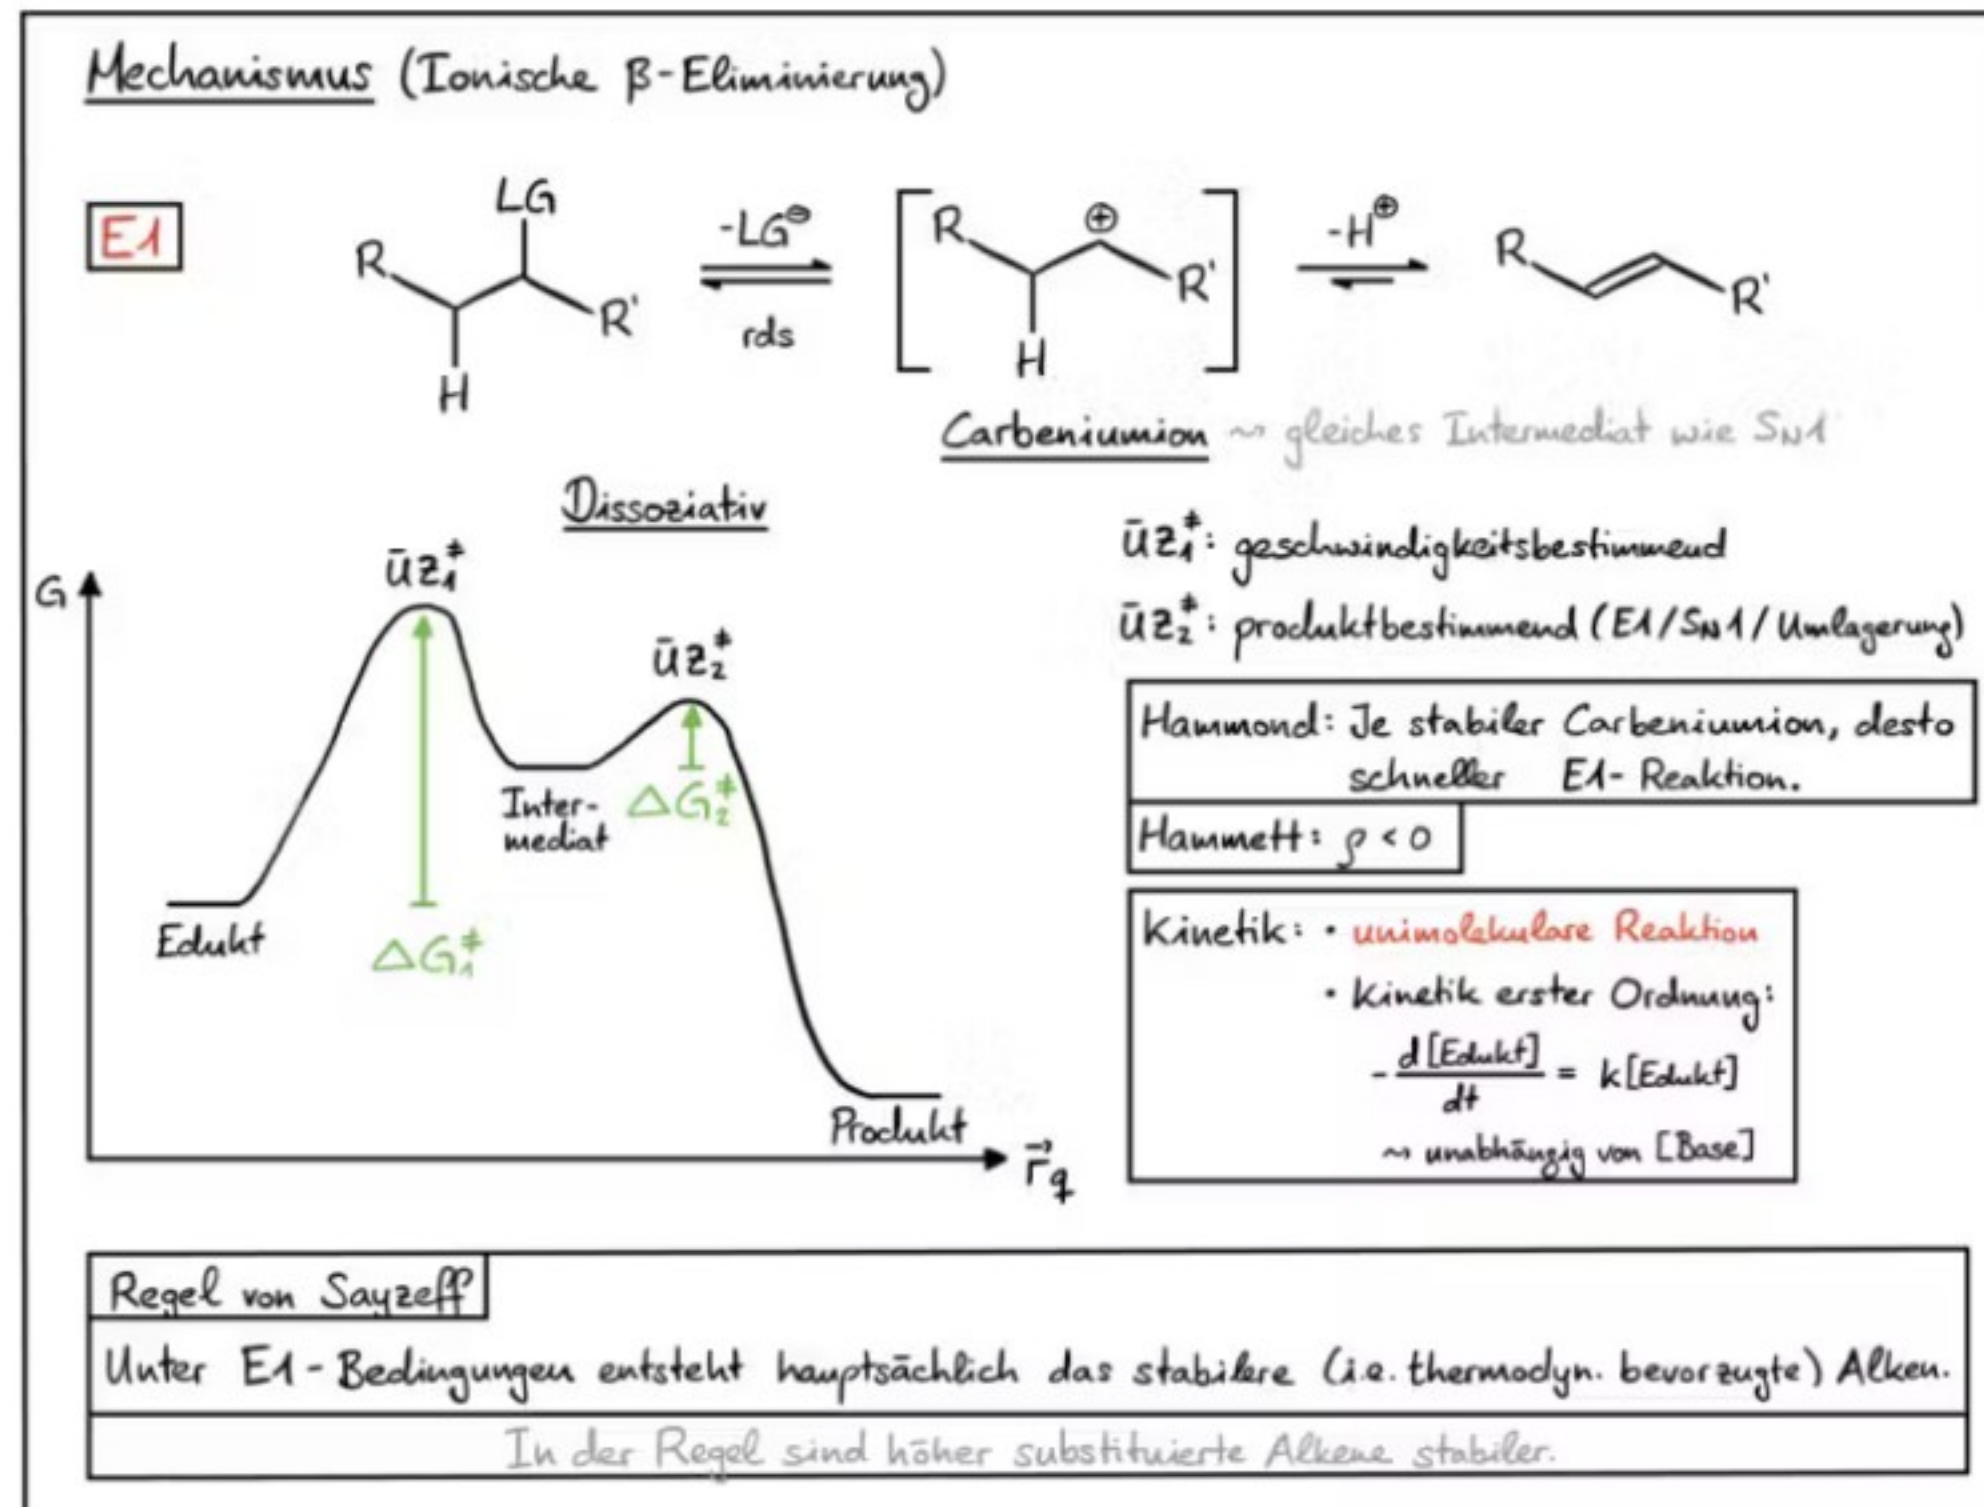 Mechanismus (Ionische β-Eliminierung)
E1
LG
R
R'
H
-LG⊖
rds
R
⊕
R'
H
-H⊕
R
R'
Carbeniumion ⇝ gleiches Intermediat wie SN1
Dissoziativ
G
ÜZ₁‡
ÜZ₂‡
Inter-
mediat
ΔG₂‡
Edukt
ΔG₁‡
Produkt
r⃗q
ÜZ₁‡: geschwindigkeitsbestimmend
ÜZ₂‡: produktbestimmend (E1/SN1/Umlagerung)
Hammond: Je stabiler Carbeniumion, desto
schneller E1-Reaktion.
Hammett: ρ < 0
Kinetik: • unimolekulare Reaktion
• Kinetik erster Ordnung:
- d[Edukt]/dt = k[Edukt]
⇝ unabhängig von [Base]
Regel von Sayzeff
Unter E1-Bedingungen entsteht hauptsächlich das stabilere (i.e. thermodyn. bevorzugte) Alken.
In der Regel sind höher substituierte Alkene stabiler.